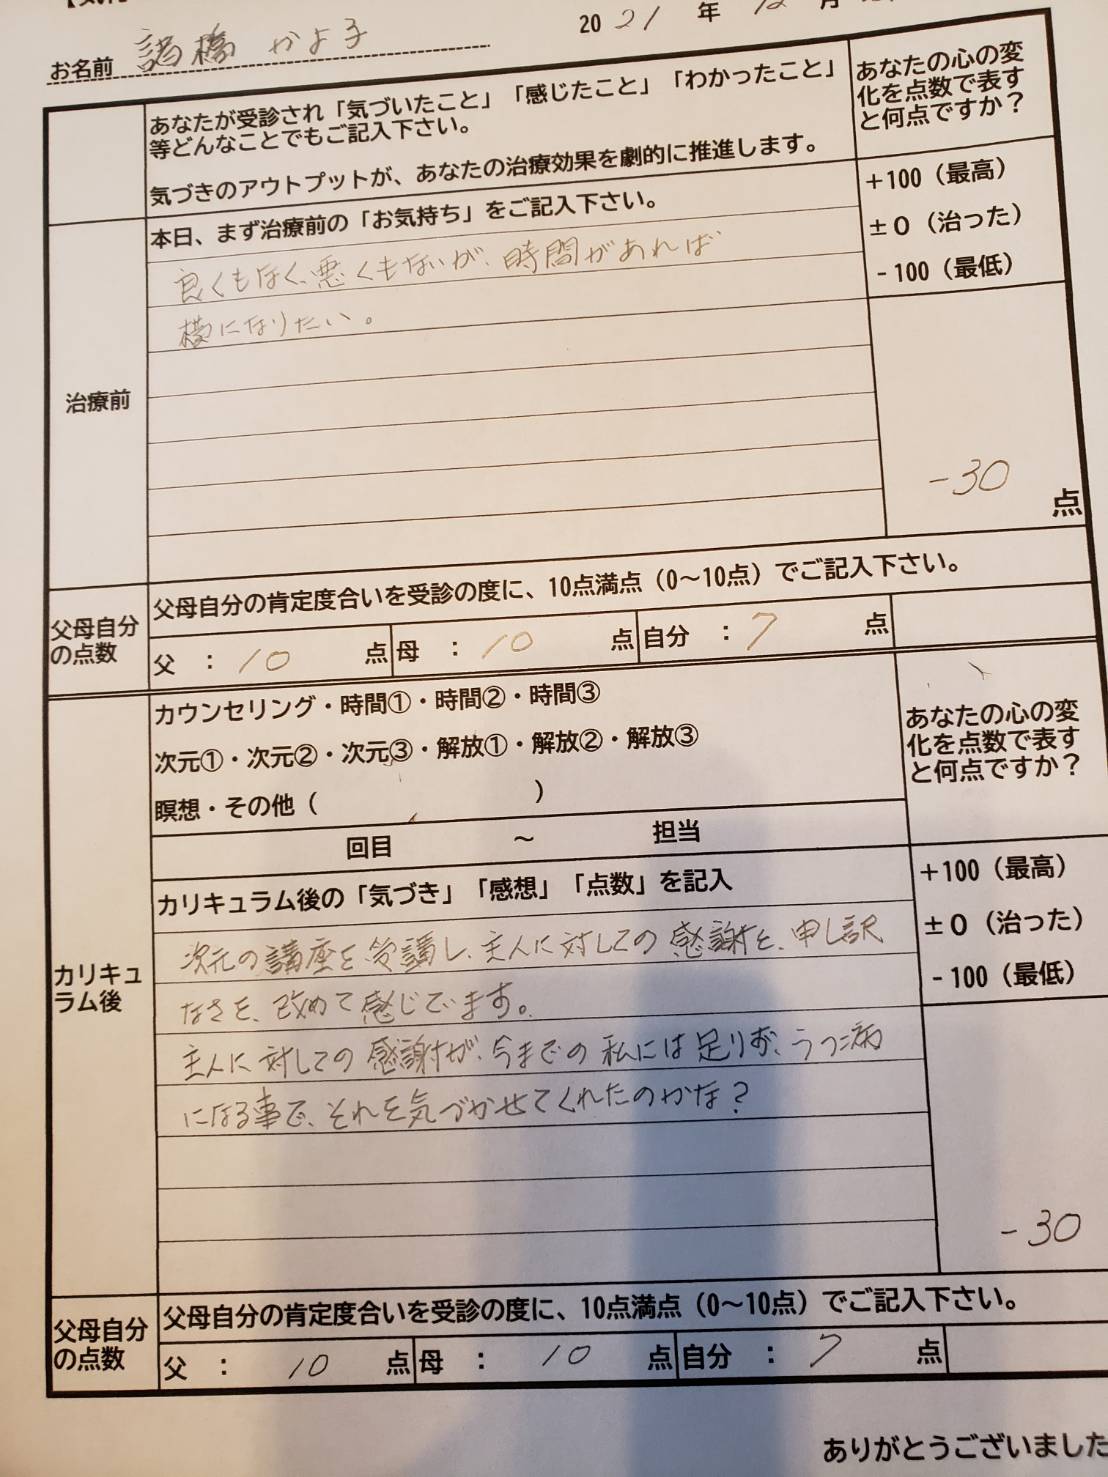 お名前 諸橋 かよ子
20 21 年 12 月
あなたが受診され「気づいたこと」「感じたこと」「わかったこと」
等どんなことでもご記入下さい。
気づきのアウトプットが、あなたの治療効果を劇的に推進します。
あなたの心の変
化を点数で表す
と何点ですか？
治療前
本日、まず治療前の「お気持ち」をご記入下さい。
良くもなく、悪くもないが、時間があれば
横になりたい。
+100（最高）
±0（治った）
-100（最低）
-30 点
父母自分
の点数
父母自分の肯定度合いを受診の度に、10点満点（0～10点）でご記入下さい。
父 : 10 点 母 : 10 点 自分 : 7 点
カリキュ
ラム後
カウンセリング・時間①・時間②・時間③
次元①・次元②・次元③・解放①・解放②・解放③
瞑想・その他（ ）
回目 ～ 担当
あなたの心の変
化を点数で表す
と何点ですか？
カリキュラム後の「気づき」「感想」「点数」を記入
次元の講座を受講し、主人に対しての感謝と、申し訳
なさを、改めて感じています。
主人に対しての感謝が、今までの私には足りず、うつ病
になる事で、それを気づかせてくれたのかな？
+100（最高）
±0（治った）
-100（最低）
-30
父母自分
の点数
父母自分の肯定度合いを受診の度に、10点満点（0～10点）でご記入下さい。
父 : 10 点 母 : 10 点 自分 : 7 点
ありがとうございました